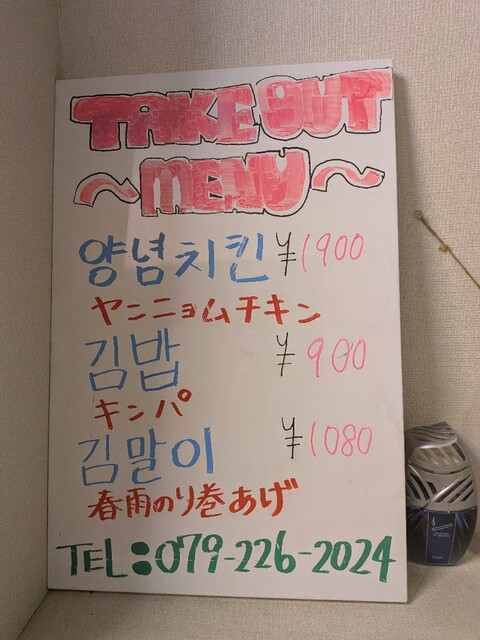 TAKE OUT
~MENU~
양념치킨 ¥1900
ヤンニョムチキン
김밥 ¥900
キンパ
김말이 ¥1080
春雨のり巻あげ
TEL:079-226-2024